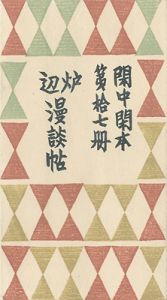 閑中閑本
第拾七冊
炉辺漫談帖